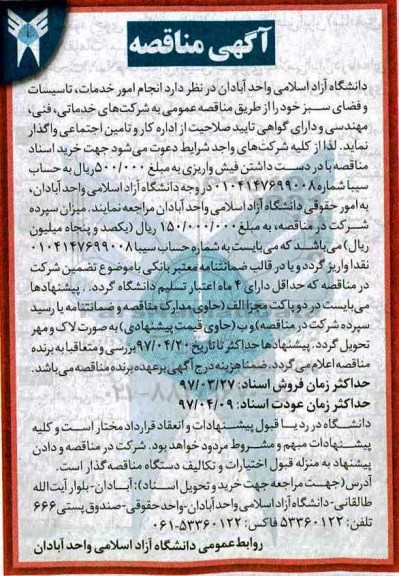 آگهی مناقصه
دانشگاه آزاد اسلامی واحد آبادان در نظر دارد انجام امور خدمات، تاسیسات
و فضای سبز خود را از طریق مناقصه عمومی به شرکت‌های خدماتی، فنی،
مهندسی و دارای گواهی تایید صلاحیت از اداره کار و تامین اجتماعی واگذار
نماید. لذا از کلیه شرکت‌های واجد شرایط دعوت می‌شود جهت خرید اسناد
مناقصه با در دست داشتن فیش واریزی به مبلغ ۵۰۰/۰۰۰ ریال به حساب
سیبا شماره ۰۱۰۴۱۴۷۶۹۹۰۰۸ در وجه دانشگاه آزاد اسلامی واحد آبادان،
به امور حقوقی دانشگاه آزاد اسلامی واحد آبادان مراجعه نمایند. میزان سپرده
شرکت در مناقصه، به مبلغ ۱۵۰/۰۰۰/۰۰۰ ریال (یکصد و پنجاه میلیون
ریال) می‌باشد که می‌بایست به شماره حساب سیبا ۰۱۰۴۱۴۷۶۹۹۰۰۸
نقدا واریز گردد و یا در قالب ضمانتنامه معتبر بانکی با موضوع تضمین شرکت
در مناقصه که حداقل دارای ۴ ماه اعتبار تسلیم دانشگاه گردد. . پیشنهادها
می‌بایست در دو پاکت مجزا الف (حاوی مدارک مناقصه و ضمانتنامه یا رسید
سپرده شرکت در مناقصه) و ب (حاوی قیمت پیشنهادی) به صورت لاک و مهر
تحویل گردد. پیشنهادها حداکثر تا تاریخ ۹۷/۰۴/۲۰ بررسی و متعاقبا به برنده
مناقصه اعلام می‌گردد. ضمنا هزینه درج آگهی بر عهده برنده مناقصه می‌باشد.
حداکثر زمان فروش اسناد: ۹۷/۰۳/۲۷
حداکثر زمان عودت اسناد: ۹۷/۰۴/۰۹
دانشگاه در رد یا قبول پیشنهادات و انعقاد قرارداد مختار است و کلیه
پیشنهادات مبهم و مشروط مردود خواهد بود. شرکت در مناقصه و دادن
پیشنهاد به منزله قبول اختیارات و تکالیف دستگاه مناقصه گذار است.
آدرس (جهت مراجعه جهت خرید و تحویل اسناد): آبادان-بلوار آیت الله
طالقانی-دانشگاه آزاد اسلامی واحد آبادان-واحد حقوقی-صندوق پستی ۶۶۶
تلفن: ۵۳۳۶۰۱۲۲ فاکس: ۵۳۳۶۰۱۲۲-۰۶۱
روابط عمومی دانشگاه آزاد اسلامی واحد آبادان